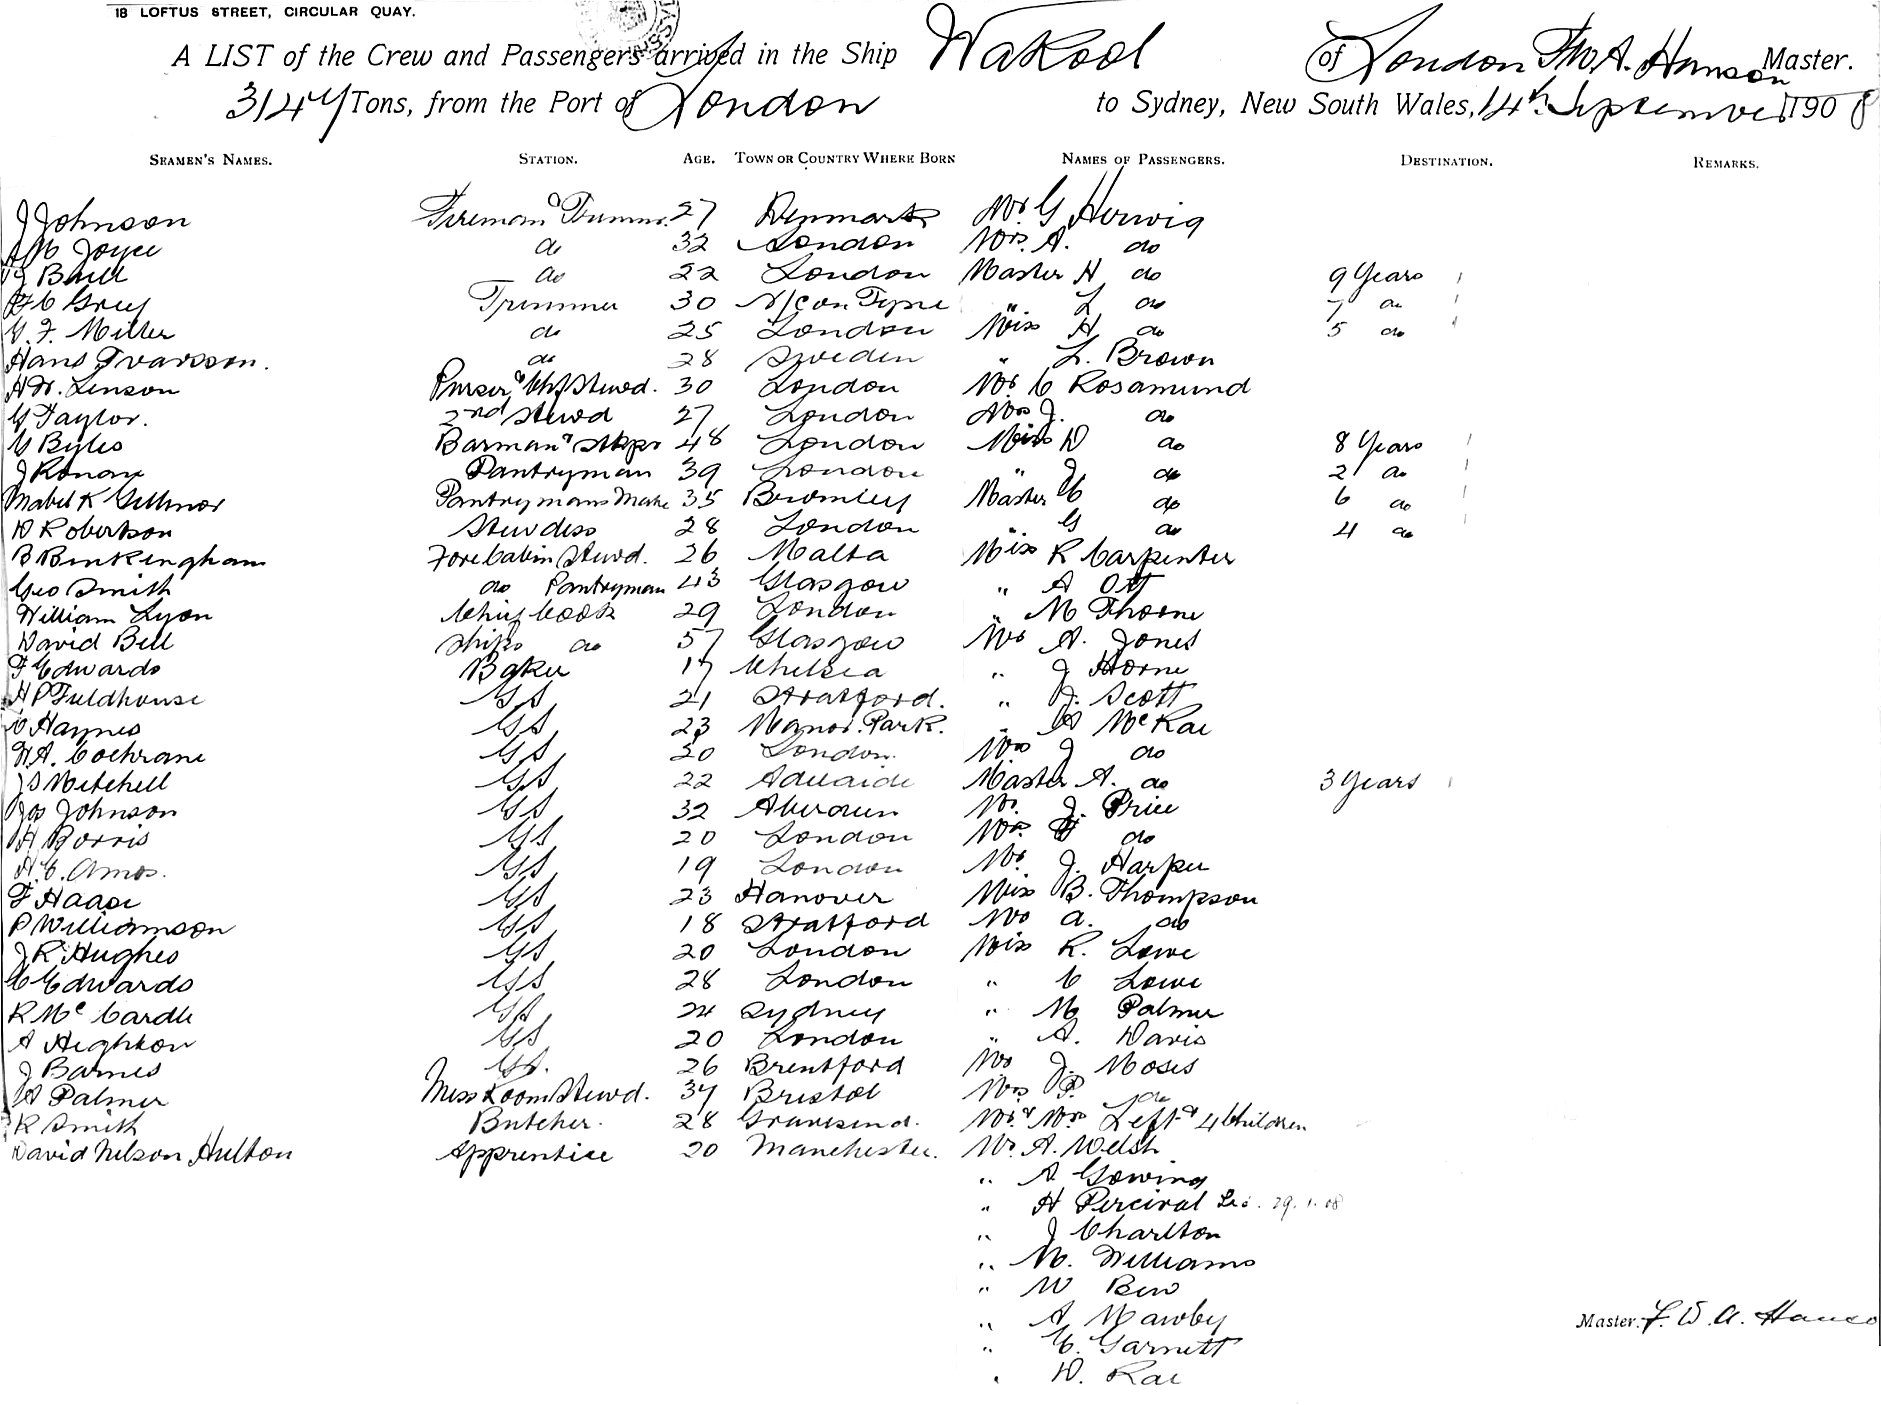 18 LOFTUS STREET, CIRCULAR QUAY.
A LIST of the Crew and Passengers arrived in the Ship Wakool of London Master.
3147 Tons, from the Port of London to Sydney, New South Wales, 14th September 1908
SEAMEN'S NAMES. STATION. AGE. TOWN OR COUNTRY WHERE BORN NAMES OF PASSENGERS. DESTINATION. REMARKS.
J Johnson Fireman & Trimmr. 27 Denmark Mr G Herwig
Joyce do 32 London Mrs. A. do
Bull do 22 London Master H do 9 Years
Grey Trimmer 30 N/C on Tyne " L do 7 do
G. F. Miller do 25 London Miss H do 5 do
Hans Ivarsson. do 28 Sweden " L. Brown
H W. Linson Purser & Chf Stewd. 30 London Mr. C Rosamund
G Taylor. 2nd Stewd 27 London Mrs J. do
G Byles Barman & Stkpr 48 London Miss D do 8 Years
J Ronan Pantryman 39 London " J do 2 do
Mabel K Gillmor Pantrymans Mate 35 Bromley Master C do 6 do
D Robertson Stewdess 28 London " G do 4 do
B Buckingham Fore Cabin Stewd. 26 Malta Miss R Carpenter
Geo Smith do Pantryman 43 Glasgow " A Ott
William Lyon Chief Cook 29 London " M Thorne
David Bell Ships do 57 Glasgow Mr A. Jones
F Edwards Baker 17 Chelsea " J Horne
H P Fieldhouse GS 21 Stratford. " J. Scott
Haynes GS 23 Manor Park. " McRae
W. A. Cochrane GS 20 London. Mrs J do
J S Mitchell GS 22 Adelaide Master A. do 3 Years
Jos Johnson GS 32 Aberdeen Mr. J. Price
H Borris GS 20 London Mrs. do
H. C. Amos. GS 19 London Mr. J. Harper
F Haase GS 23 Hanover Miss B. Thompson
P Williamson GS 18 Stratford Mr a. do
J R Hughes GS 20 London Miss R. Lowe
C Edwards GS 28 London " C Lowe
R McCardle GS 24 Sydney " M Palmer
A Heighton GS 20 London " A. Davis
J Barnes GS. 26 Brentford Mr J. Moses
W Palmer Mess Room Stewd. 34 Bristol Mrs P. do
R Smith Butcher. 28 Gravesend. Mr & Mrs Left & 4 Children
David Nelson Hulton Apprentice 20 Manchester. Mr. A. Welsh
" A Gowing
" H Percival 29.1.08
" J Charlton
" M. Williams
" W Bew
" A Mawby
" C. Garnett
" D. Rae
Master.